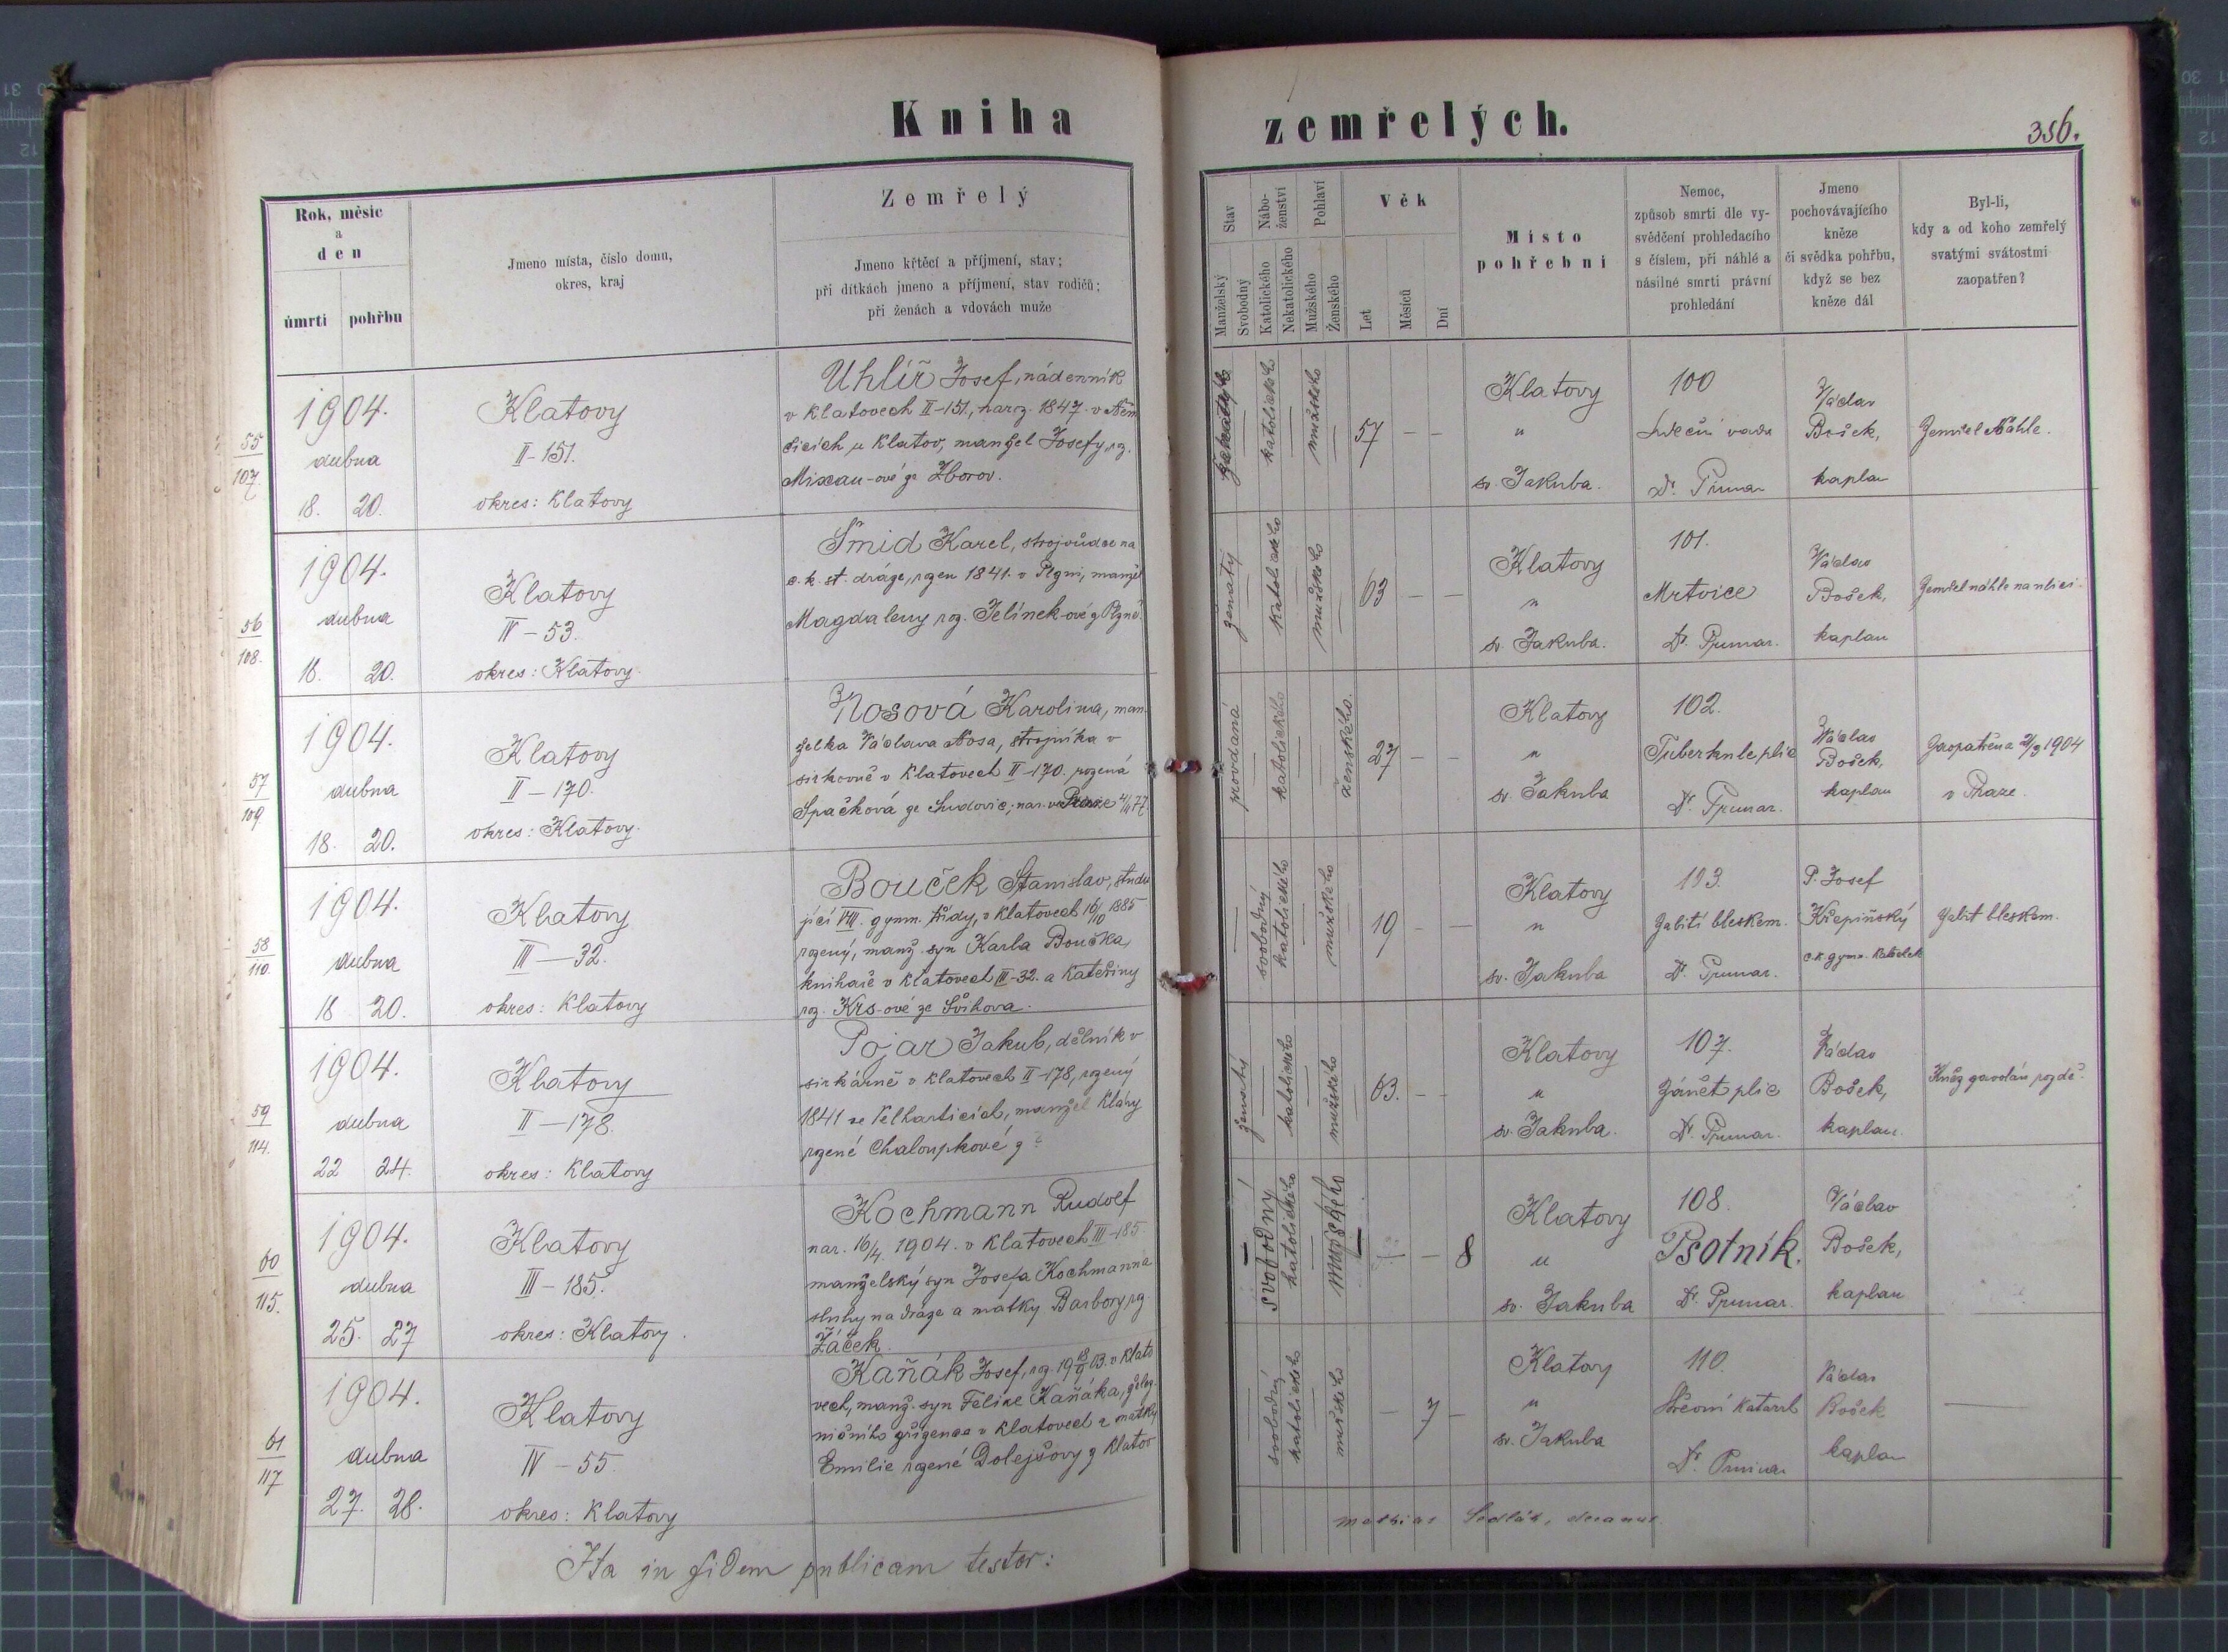 Kniha zemřelých.
356.
Rok, měsíc
a
den
úmrtí pohřbu
Jmeno místa, číslo domu,
okres, kraj
Zemřelý
Jmeno křtěcí a příjmení, stav;
při dítkách jmeno a příjmení, stav rodičů;
při ženách a vdovách muže
Stav
Manželský
Svobodný
Nábo-
ženství
Katolického
Nekatolického
Pohlaví
Mužského
Ženského
Věk
Let
Měsíců
Dní
Místo
pohřební
Nemoc,
způsob smrti dle vy-
svědčení prohledacího
s číslem, při náhlé a
násilné smrti právní
prohledání
Jmeno
pochovávajícího
kněze
či svědka pohřbu,
když se bez
kněze dál
Byl-li,
kdy a od koho zemřelý
svatými svátostmi
zaopatřen?
55
107.
1904.
dubna
18. 20.
Klatovy
II-151.
okres: Klatovy
Uhlíř Josef, nádenník
v Klatovech II-151, narz. 1847. v Něm
čicích u Klatov, manžel Josefy, rz.
Mixau-ové ze Zborov.
katolického
mužského
57 – –
Klatovy
u
sv. Jakuba.
100
Srdeční vada
Dr. Prunar
Václav
Bošek,
kaplan
Zemřel náhle.
56
108.
1904.
dubna
18. 20.
Klatovy
IV – 53.
okres: Klatovy.
Šmid Karel, strojvůdce na
c. k. st. dráze, rozen 1841. v Plzni, manžel
Magdaleny roz. Jelínek-ové z Plzně.
ženatý
katolického
mužského
63 – –
Klatovy
u
sv. Jakuba.
101.
Mrtvice
Dr. Prunar.
Václav
Bošek,
kaplan
Zemřel náhle na ulici.
57
109
1904.
dubna
18. 20.
Klatovy
II – 170.
okres: Klatovy.
Nosová Karolina, man-
želka Václava Nosa, strojníka v
sirkovně v Klatovech II-170. rozená
Spačková ze Sudovic; nar. v Praze 4/11 77.
provdaná
katolického
ženského.
27 – –
Klatovy
u
sv. Jakuba
102.
Tuberkule plic
Dr. Prunar.
Václav
Bošek,
kaplan
Zaopatřena 2/3 1904
v Praze.
58
110.
1904.
dubna
18 20.
Klatovy
III – 32.
okres: Klatovy
Bouček Stanislav, studu
jící VIII. gymn. třídy, v Klatovech 16/10 1885
rozený, manž. syn Karla Boučka,
knihaře v Klatovech III-32. a Kateřiny
roz. Krs-ové ze Švihova.
svobodný
katolického
mužského
19 – –
Klatovy
u
sv. Jakuba
103.
Zabití bleskem.
Dr. Prunar.
P. Josef
Křepinský
c. k. gymn. katechet
Zabit bleskem.
59
114.
1904.
dubna
22 24.
Klatovy
II – 178.
okres: Klatovy
Pojar Jakub, dělník v
sirkárně v Klatovech II-178, rozený
1841 ve Velharticích, manžel Kláry
rozené Chaloupkové z ?
ženatý
katolického
mužského
63. – –
Klatovy
u
sv. Jakuba.
107.
Zánět plic
Dr. Prunar.
Václav
Bošek,
kaplan.
Kněz zavolán pozdě.
60
115.
1904.
dubna
25. 27
Klatovy
III – 185.
okres: Klatovy.
Kochmann Rudolf
nar. 16/4 1904. v Klatovech III-185
manželský syn Josefa Kochmanna
sluhy na dráze a matky Barbory roz.
Žáček.
svobodný
katolického
mužského
– – 8
Klatovy
u
sv. Jakuba
108.
Psotník.
Dr. Prunar.
Václav
Bošek,
kaplan
61
117
1904.
dubna
27. 28.
Klatovy
IV – 55.
okres: Klatovy
Kaňák Josef, roz. 19 18/9 03. v Klato
vech, manž. syn Felixe Kaňáka, želez
ničního zřízence v Klatovech a matky
Emilie rozené Dolejšovy z Klatov
svobodný
katolického
mužského
– 7 –
Klatovy
u
sv. Jakuba
110.
Střevní katarrh
Dr. Prunar
Václav
Bošek
kaplan
–
Ita in fidem publicam testor:
Mathias Sedlák, decanus.